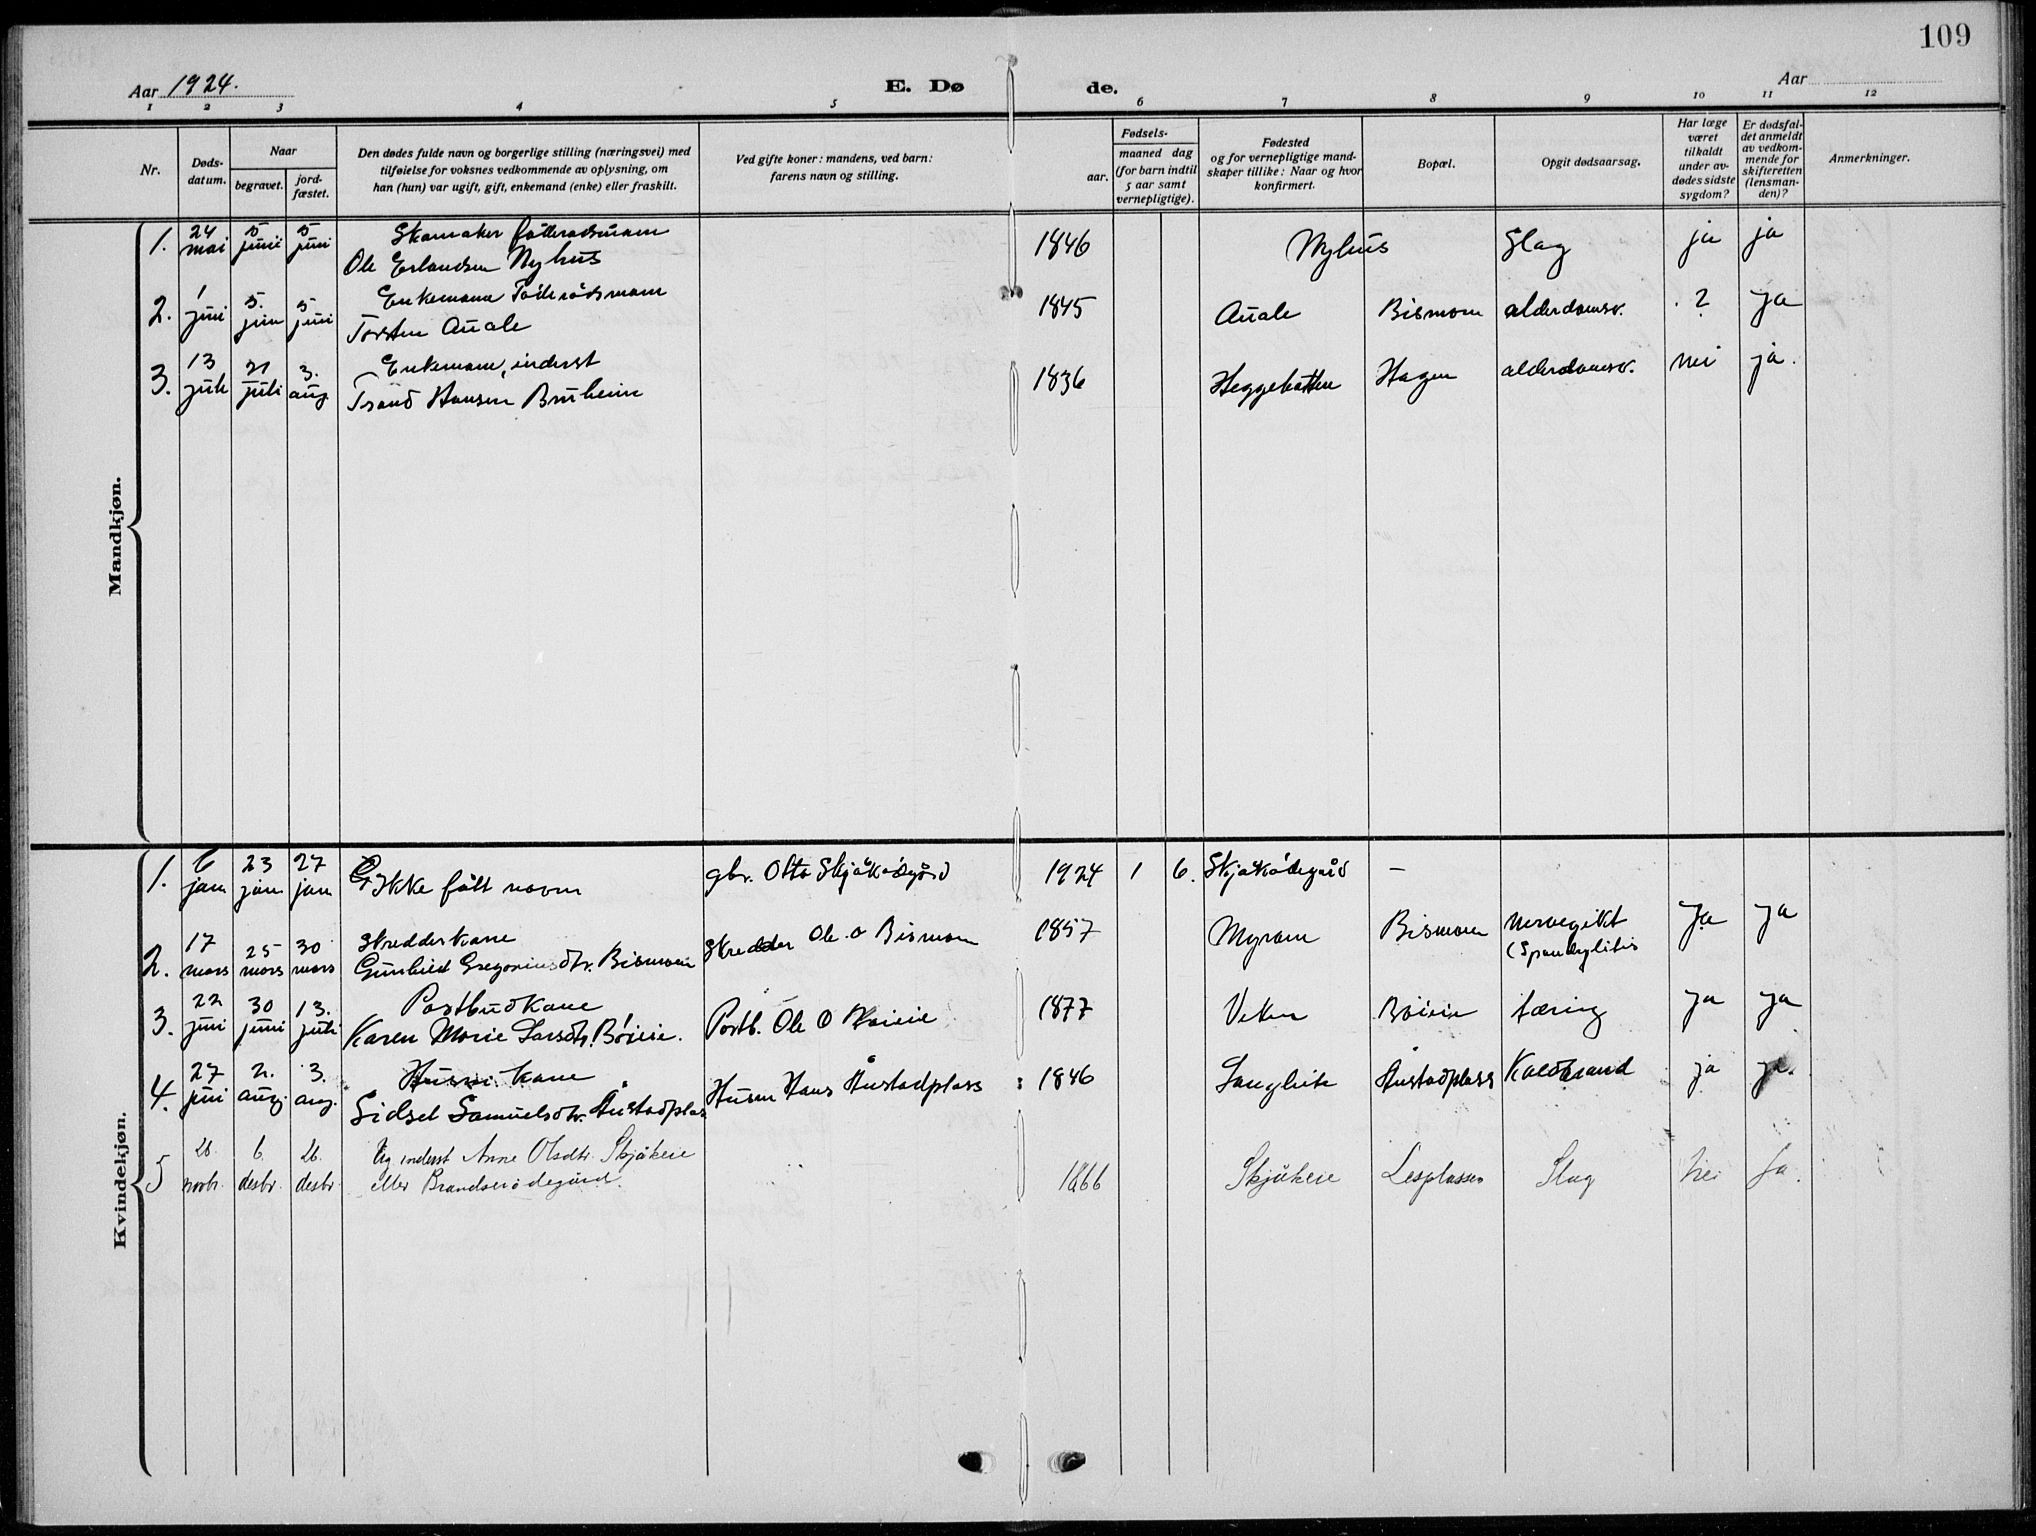 109
Aar 1924.
E. Dø de.
Aar
1 2 3 4 5 6 7 8 9 10 11 12
Nr.
Døds-
datum.
Naar
begravet.
jord-
fæstet.
Den dødes fulde navn og borgerlige stilling (næringsvei) med
tilføielse for voksnes vedkommende av oplysning, om
han (hun) var ugift, gift, enkemand (enke) eller fraskilt.
Ved gifte koner: mandens, ved barn:
farens navn og stilling.
aar.
Fødsels-
maaned dag
(for barn indtil
5 aar samt
vernepligtige).
Fødested
og for vernepligtige mand-
skaper tillike: Naar og hvor
konfirmert.
Bopæl.
Opgit dødsaarsag.
Har læge
været
tilkaldt
under av-
dødes sidste
sygdom?
Er dødsfal-
det anmeldt
av vedkom-
mende for
skifteretten
(lensman-
den)?
Anmerkninger.
Mandkjøn.
1. 24 mai 5 juni 5 juni Skomaker
Ole Erlandsen Nyhus 1846 Nyhus Slag ja ja
2. 1 juni 5. juni 5 juni Enkemann
Torsten Auale 1845 Auale Bismoen alderdomsv. ? ja
3. 13 juli 21 juli 3. aug. Enkemann, inderst
Trond Hansen Bruheim 1836 Heggebotten Hagen alderdomsv. nei ja.
Kvindekjøn.
1. 6 jan 23 jan 27 jan Ikke fått navn gbr. Otto Skjåkødegård 1924 1 6. Skjåkødegård –
2. 17 mars 25 mars 30 mars Skredderkone
Gunhild Gregoriusdtr. Bismoen Skredder Ole O Bismoen 1857 Myrom Bismoen nervegikt ja ja
(Spondylitis
3. 22 juni 30 juni 13. juli Postbudkone
Karen Marie Larsdtr. Bøieie. Postb. Ole O Bøieie 1877 Veken Bøieie tæring ja ja
4. 27 juni 2. aug. 3. aug. Husm. kone
Sidsel Samuelsdtr. Åustadplas Husm Hans Åustadplass 1846 Langleite Åustadplass Koldbrand ja ja.
5 26 novbr. 6 desbr. 26. desbr. Ug. inderst Anne Olsdtr. Skjåkeie
eller Brandserødegård. 1866 Skjåkeie Lesplassen Slag nei ja.